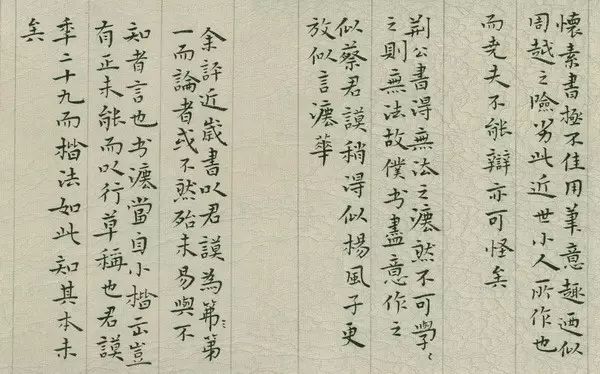 懷素書極不佳用筆意趣迺似
周越之險劣此近世小人所作也
而堯夫不能辯亦可怪矣
荊公書得無法之灋然不可學〻
之則無法故僕书盡意作之
似蔡君謨稍得似楊風子更
放似言灋華
余評近歲書以君謨為第第
一而論者或不然殆未易與不
知者言也书灋當自小楷出豈
有正未能而以行草稱也君謨
秊二十九而楷法如此知其本末
矣